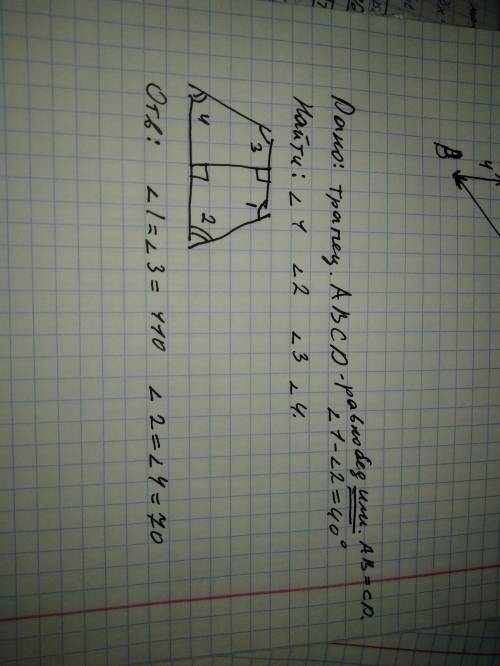 Дано: трапец. ABCD - равнобед или. AB = CD.
∠1 - ∠2 = 40°
Найти: ∠1 ∠2 ∠3 ∠4.
3 1
4 2
Отв: ∠1 = ∠3 = 110 ∠2 = ∠4 = 70
B
4